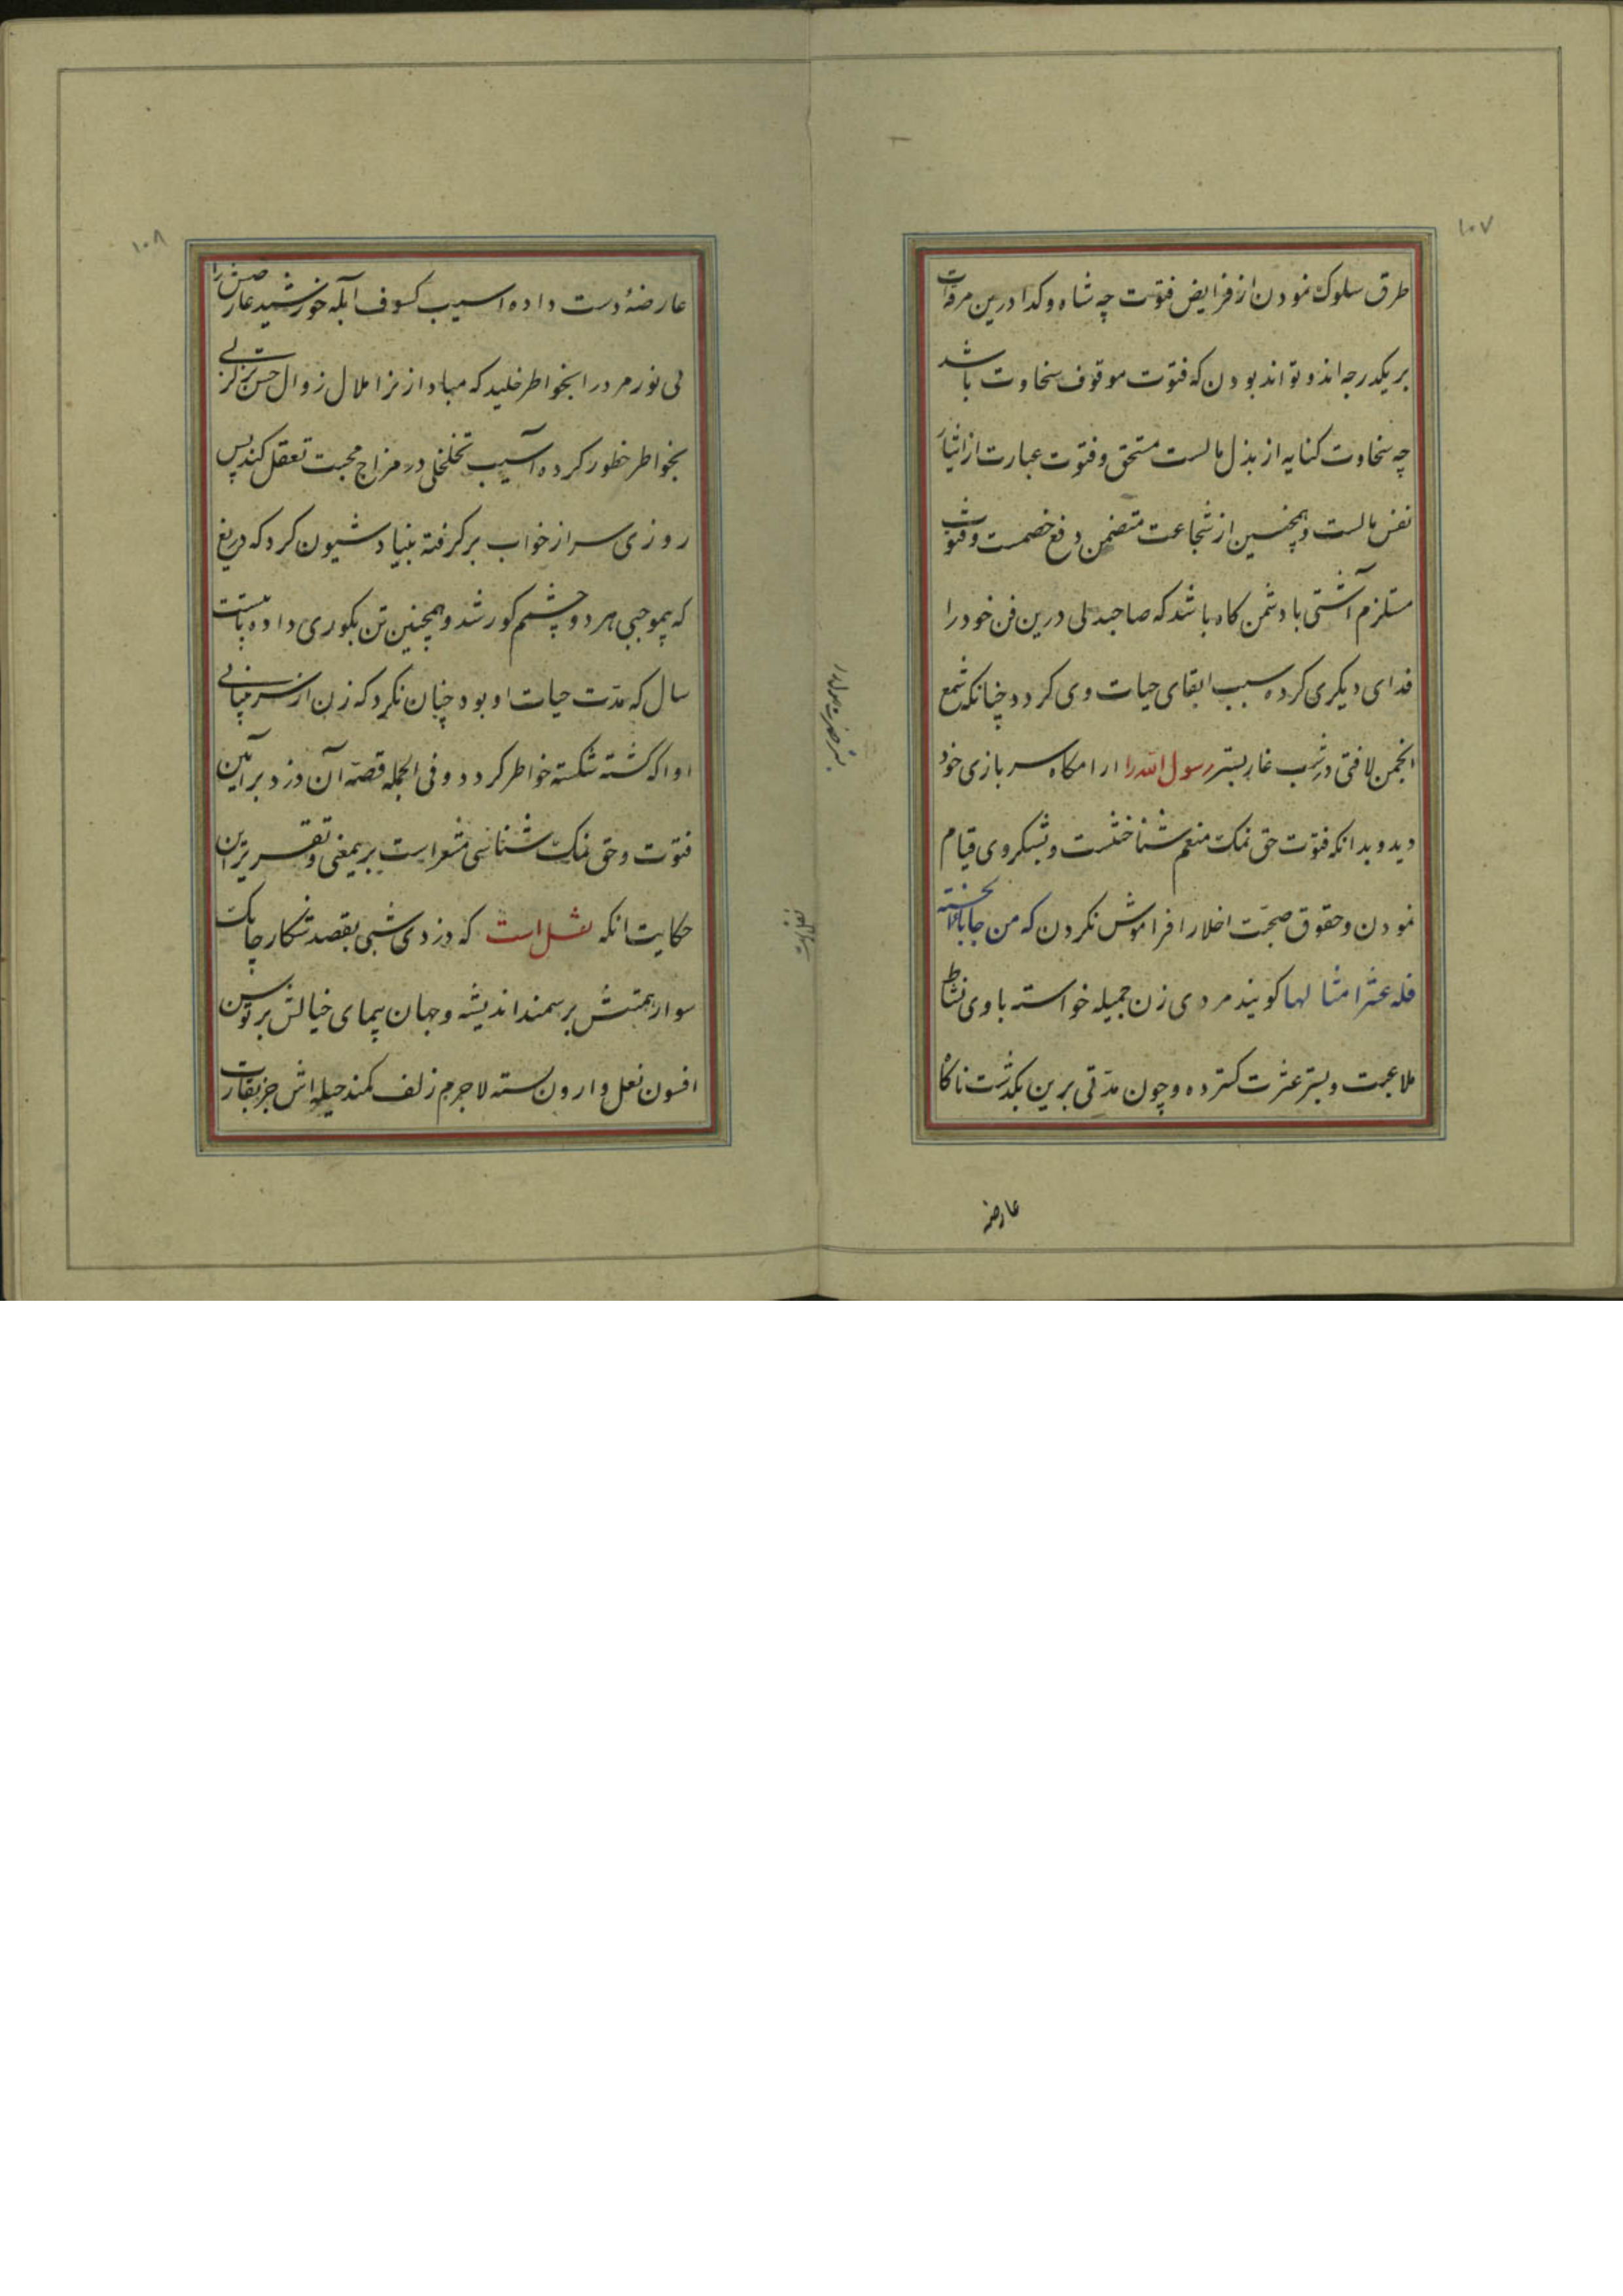 ۱۰۷
طرق سلوک نمودن از فرایض فتوت چه شاه و کدا درین مروات
بر یکدرجه اند و تواند بودن که فتوت موقوف سخاوت باشد
چه سخاوت کنایه از بذل مالست مستحق و فتوت عبارت از ایثار
نفس مالست و همچنین از شجاعت متضمن دفع خصمست و فتوت
مستلزم آشتی با دشمن کاه باشد که صاحبدلی درین فن خود را
فدای دیکری کرده سبب ابقای حیات وی کردد چنانکه شمع
انجمن لافتی در شب غار بستر رسول الله را ارامکاه سربازی خود
دید و بدانکه فتوت حق نمک منعم شناختنست و بشکر وی قیام
نمودن و حقوق صحبت اخلا را فراموش نکردن که من جا بالحسنة
فله عشر امثالها کویند مردی زن جمیله خواسته با وی نشاط
ملاعبت و بستر عشرت کسترده و چون مدتی برین بکذشت ناکاه
عارضه
۱۰۸
عارضهٔ دست داده اسیب کسوف آبله خورشید عارضش را
بی نور مرد را بخواطر خلید که مبادا زنرا ملال زوال حسن
بخواطر خطور کرده آسیب تخلخلی در مزاج محبت تعقل کند پس
روزی سر از خواب برکرفته بنیاد شیون کرد که دریغ
که بیموجبی هر دو چشمم کور شد و همچنین تن بکوری داده تا بیست
سال که مدت حیات او بود چنان نکرد که زن از سر بینایی
او اکه کشته شکسته خواطر کردد و فی الجمله قصه آن دزد بر آیین
فتوت و حق نمک شناسی مشعر است بریمعنی و تقریر این
حکایت انکه نقل است که دزدی شبی بقصد شکار چابک
سوار همتش بر سمند اندیشه و جهان پیمای خیالش بر توسن
افسون نعل وارون بسته لاجرم زلف کمند حیله اش جز بغارت